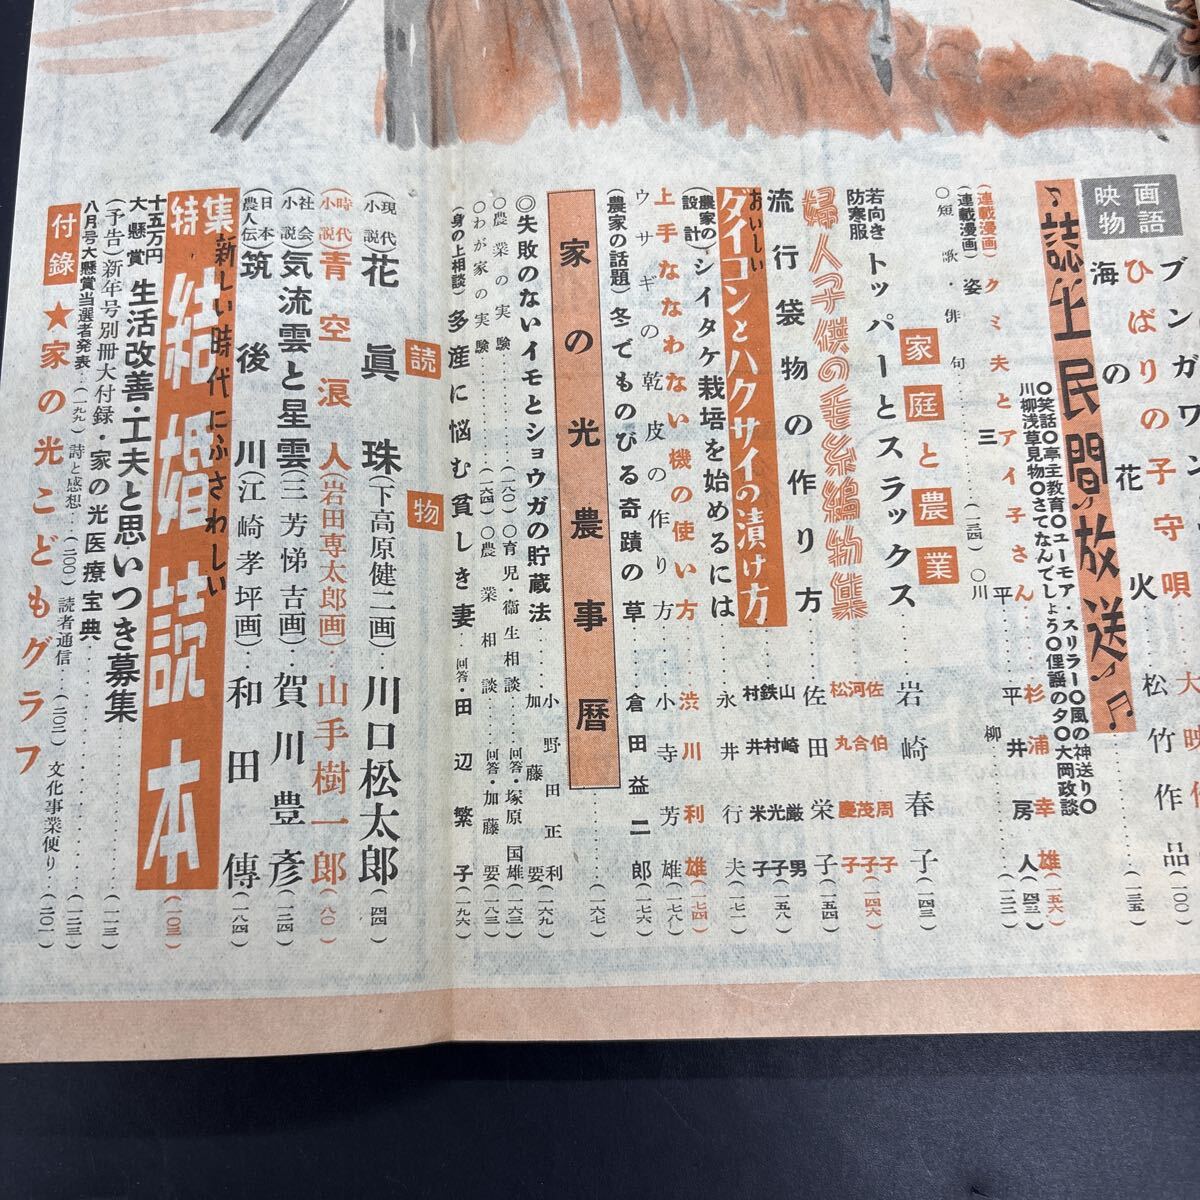 映画物語
ブンガワン
大映作
(一〇〇)
ひばりの子守唄
海の花火
松竹作品
(一三五)
♪誌上民間放送♪♫
〇笑話〇亭主教育〇ユーモア・スリラー〇風の神送り〇
川柳浅草見物〇さてなんでしょう〇俚謡の夕〇大岡政談
(連載漫画)クミ夫とアイ子さん
杉浦幸雄(一五六)
(連載漫画)姿三平
平井房人(四三)
〇短歌・俳句
(一三四)〇川柳
家庭と農業
若向き防寒服トッパーとスラックス
岩崎春子(一四三)
婦人子供の毛糸編物集
佐伯周子
河合茂子
松丸慶子
(一四六)
流行袋物の作り方
佐田栄子(一五四)
おいしいダイコンとハクサイの漬け方
山崎巌男
鉄村光子
村井米子
(一五八)
(農家の設計)シイタケ栽培を始めるには
永井行夫(一七一)
上手なわない機の使い方
渋川利雄(一七四)
ウサギの乾皮の作り方
小寺芳雄(一七八)
(農家の話題)冬でものびる奇蹟の草
倉田益二郎(一七六)
家の光農事暦
(一六七)
◎失敗のないイモとショウガの貯蔵法
小野田正利
加藤要
(一六九)
〇農業の実験
(一八〇)〇育児・衛生相談
回答・塚原国雄(一六三)
〇わが家の実験
(一六四)〇農業相談
回答・加藤要(一八三)
(身の上相談)多産に悩む貧しき妻
回答・田辺繁子(一九六)
読物
(現代小説)花真珠(下高原健二画)
川口松太郎(四四)
(時代小説)青空浪人(岩田専太郎画)
山手樹一郎(八〇)
(社会小説)気流雲と星雲(三芳悌吉画)
賀川豊彦(一二四)
(日本農人伝)筑後川(江崎孝坪画)
和田傳(一八四)
特集
新しい時代にふさわしい
結婚読本
(一〇三)
十五万円大懸賞 生活改善・工夫と思いつき募集
(一一三)
(予告)新年号別冊大付録・家の光医療宝典
(一二三)
八月号大懸賞当選者発表(一九)
詩と感想(二〇〇)
読者通信(二〇二)
文化事業便り(二〇一)
付録★家の光こどもグラフ